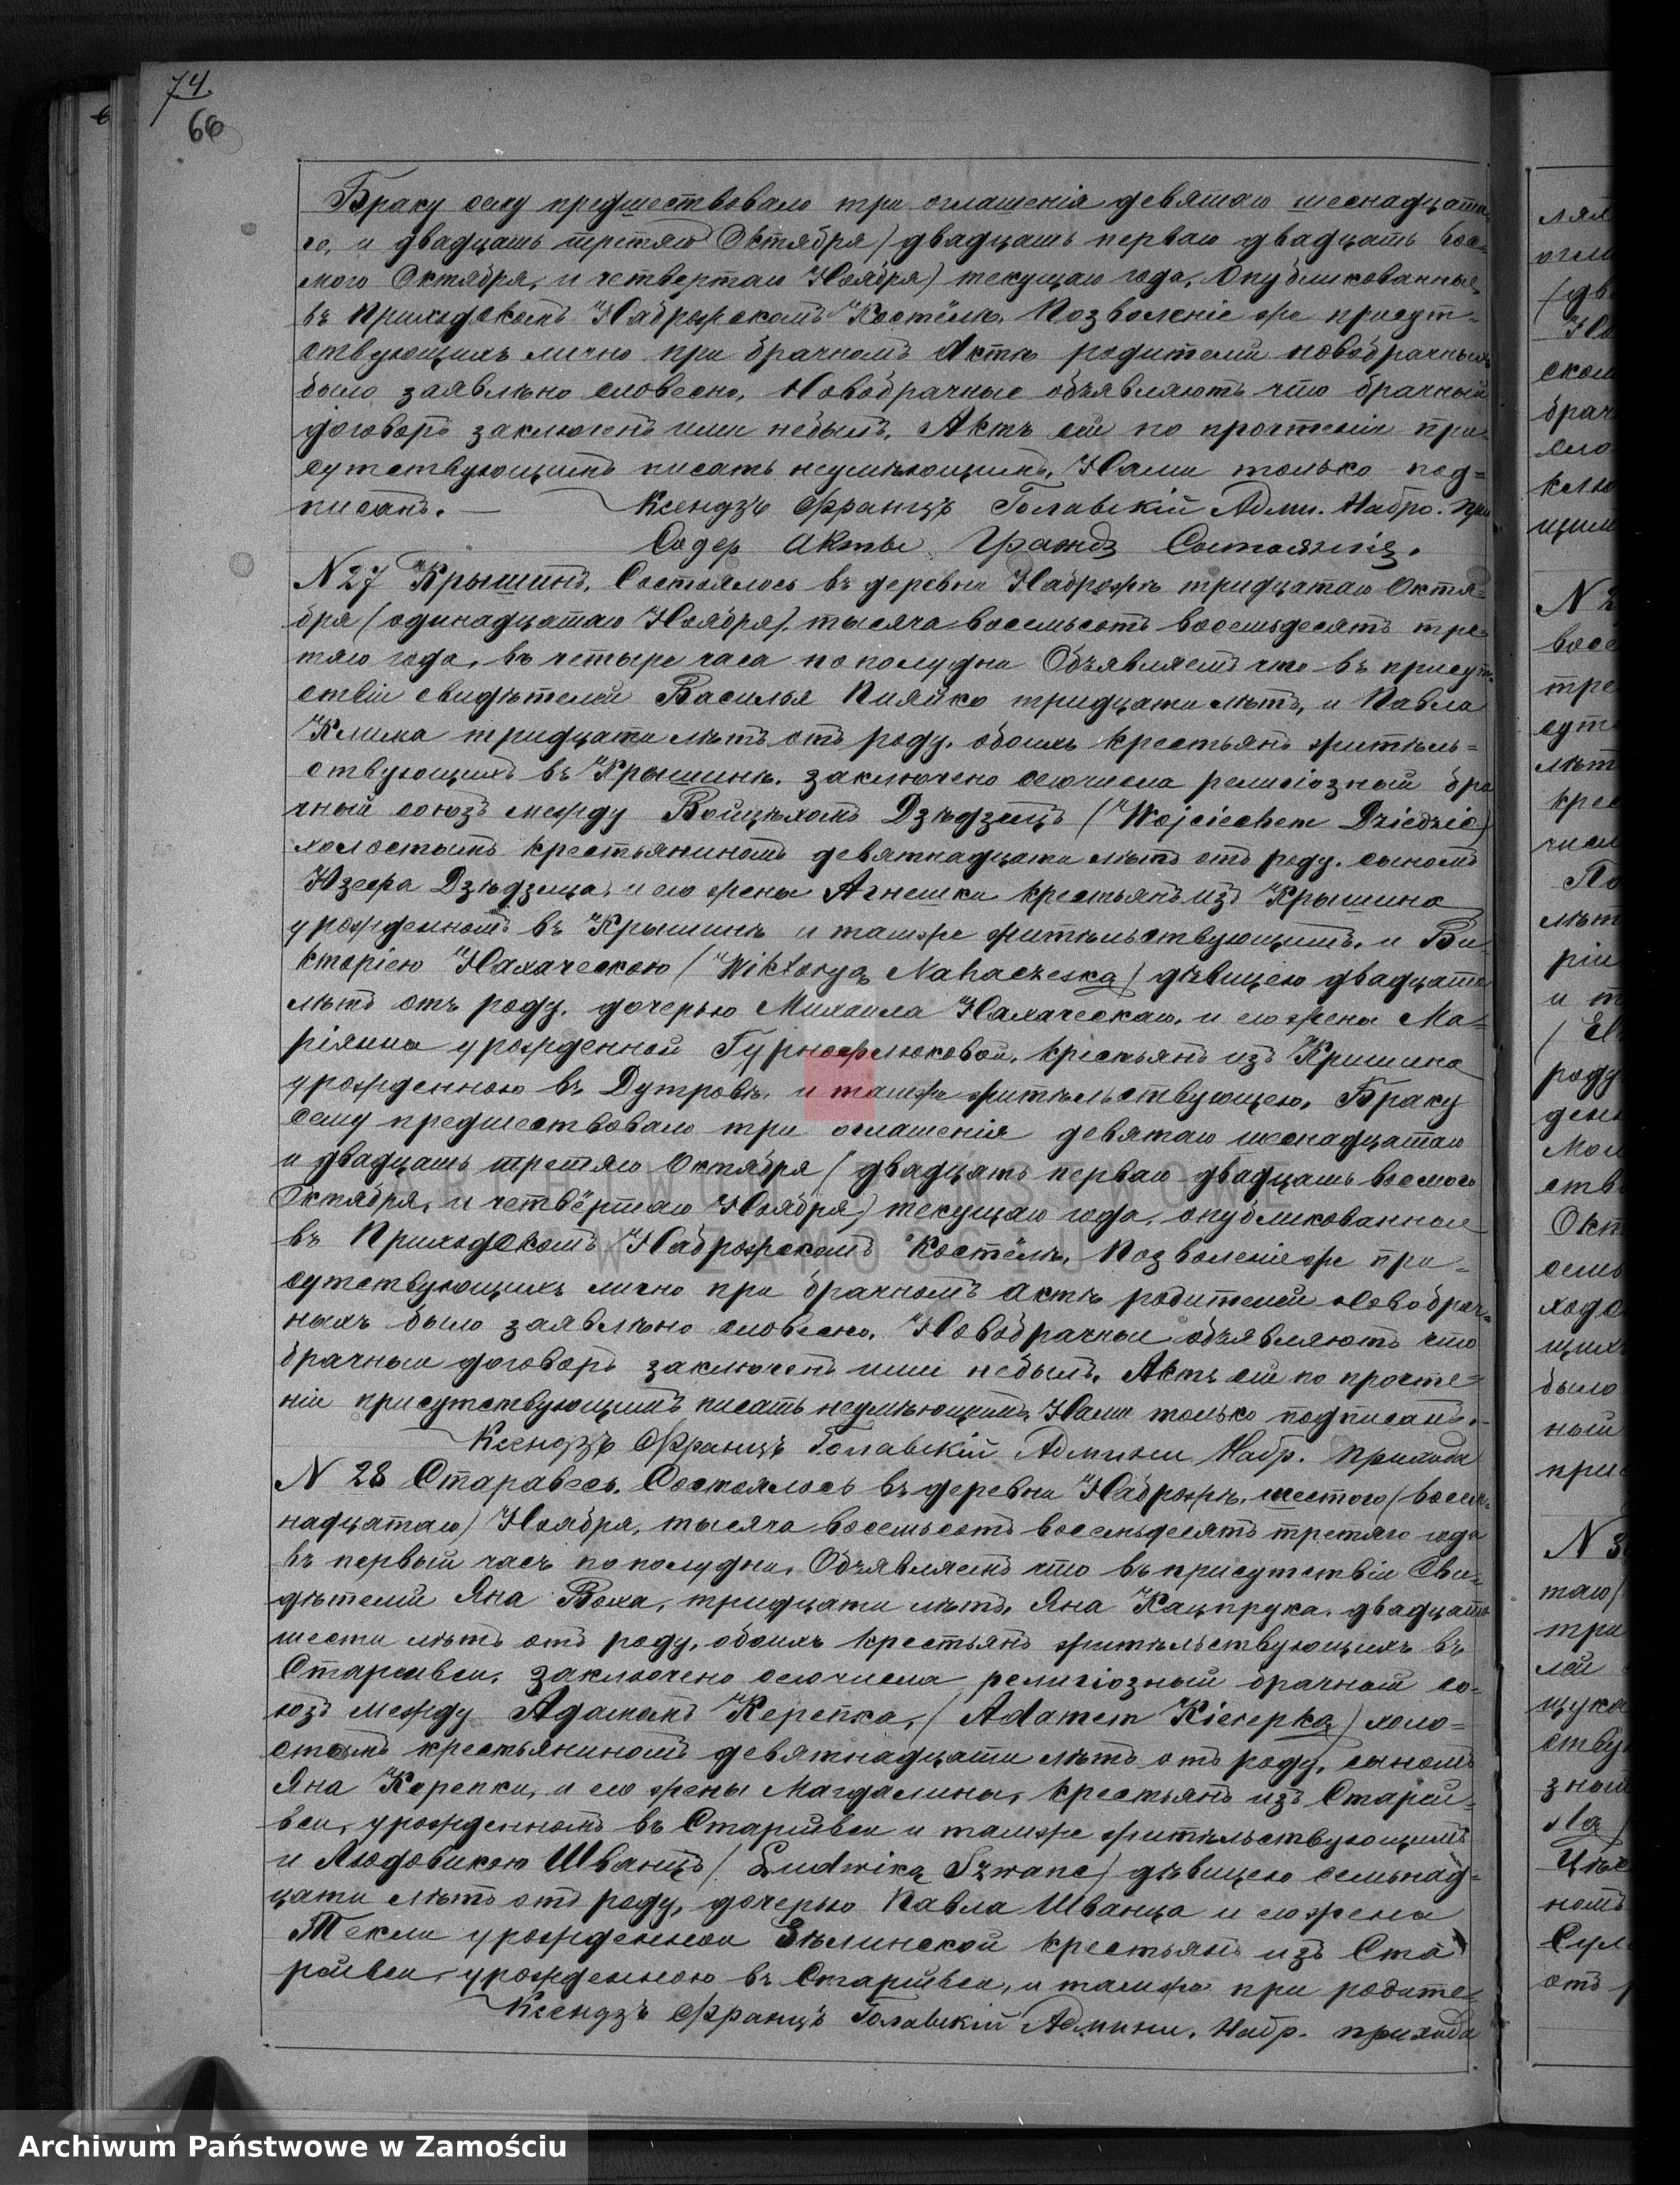 74
66
Браку сему предшествовало три оглашенія девятаго шеснадцата
го, и двадцать третяго Октября / двадцать перваго двадцать вос-
мого Октября, и четвертаго Ноября) текущаго года, Опубликованныя
въ Приходскомъ Наброжскомъ Костёлѣ, Позволеніе же присут-
ствующихъ лично при брачномъ Актѣ родителей новобрачныхъ
было заявлѣно словесно, Новобрачные объявляютъ что брачный
договоръ заключенъ ими небылъ, Актъ сій по прочтеніи при-
сутствующимъ писать неумѣющимъ, Нами только под=
писанъ. — Ксендзъ Францъ Голавскій Адми. Набро. при
Содер Акты Гражд Состоянія.
N 27 Крышинъ, Состоялось въ деревни Наброжѣ тридцатаго Октя=
бря / одинадцатаго Ноября/. тысяча восемьсотъ восемьдесятъ тре-
тяго года, въ четыре часа пополудни Объявляемъ что въ присут-
ствіи свидѣтелей Василья Пияйко тридцати лѣтъ, и Павла
Клима тридцати лѣтъ отъ роду, обоихъ крестьянъ жителъ=
ствующихъ въ Крышинѣ, заключено сегочисла религіозный бра
чный союзъ между Войцѣхомъ Дзѣдзицъ (Wojciechem Dziedzic)
холостымъ крестьяниномъ девятнадцати лѣтъ отъ роду, сыномъ
Юзефа Дзѣдзица, и его жены Агнешки крестьянъ изъ Крышина
урожденномъ въ Крышинѣ и тамже жителъствующимъ, и Ви-
кторіею Нахаческою (Wiktoryą Nahaczeską) дѣвицею двадцати
лѣтъ отъ роду, дочерью Михаила Нахаческаго, и его жены Ма=
ріянны урожденной Гурнофлюковой, крестьянъ изъ Кришина
урожденною въ Дутровѣ, и тамже жителъствующею, Браку
сему предшествовало три оглашенія девятаго шеснадцатаго
и двадцать третяго Октября (двадцать перваго двадцать восмого
Октября, и четвёртаго Ноября) текущаго года, опубликованныя
въ Приходскомъ Наброжскомъ Костёлѣ, Позволеніе же при-
сутствующихъ лично при брачномъ Актѣ родителей новобрач-
ныхъ было заявлѣно словесно, Новобрачныи объявляютъ что
брачныи договоръ заключенъ ими небылъ, Актъ сій по прочте=
ніи присутствующимъ писать неумѣющимъ, Нами только подписанъ.-
Ксендзъ Францъ Голавскій Админи Набр. прихода
N 28 Старавесь, Состоялось въ деревни Наброжѣ, шестого (восем-
надцатаго) Ноября, тысяча восемьсотъ восемьдесятъ третяго года
въ первый часъ пополудни, Объявляемъ что въ присутствіи Сви-
дѣтелей Яна Воха, тридцати лѣтъ, Яна Кацпрука, двадцати
шести лѣтъ отъ роду, обоихъ крестьянъ жителъствующихъ въ
Старейвси, заключено сегочисла религіозный брачный со-
юзъ между Адамомъ Керепка, (Adamem Kierepką) холо=
стымъ крестьяниномъ девятнадцати лѣтъ отъ роду, сыномъ
Яна Керепки, и его жены Магдалины, крестьянъ изъ Старей=
вси, урожденномъ въ Старейвси и тамже жителъствующимъ
и Людовикою Шванцъ (Ludwiką Szwanc) дѣвицею семьнад=
цати лѣтъ отъ роду, дочерью Павла Шванца и его жены
Текли урожденной Зѣлинской крестьянъ изъ Ста
рейвси, урожденною въ Старейвси, и тамже при родите=
Ксендзъ Францъ Голавскій Админи. Набр. прихода
ARCHIWUM PAŃSTWOWE
W ZAMOŚCIU
Archiwum Państwowe w Zamościu